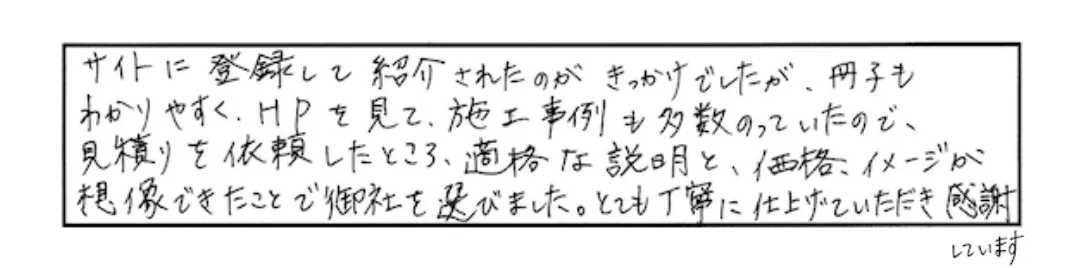 サイトに登録して紹介されたのがきっかけでしたが、冊子も
わかりやすく、HPを見て、施工事例も多数のっていたので、
見積りを依頼したところ、適格な説明と、価格、イメージが
想像できたことで御社を選びました。とても丁寧に仕上げていただき感謝
しています